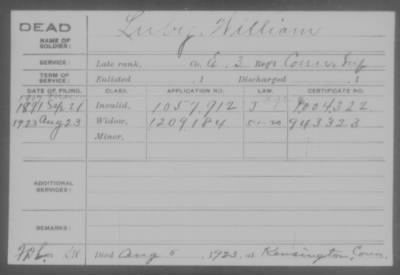 DEAD
NAME OF SOLDIER:
Luby, William
SERVICE:
Late rank, Co. E, 3 Reg't Conn. Inf
TERM OF SERVICE:
Enlisted , 1 Discharged , 1
DATE OF FILING. CLASS. APPLICATION NO. LAW. CERTIFICATE NO.
1891 Sep 21 Invalid, 1057,912 J 1004322
1923 Aug 23 Widow, 1209184 943323
Minor,
ADDITIONAL SERVICES:
REMARKS:
Died Aug 5, 1923, at Kensington, Conn.